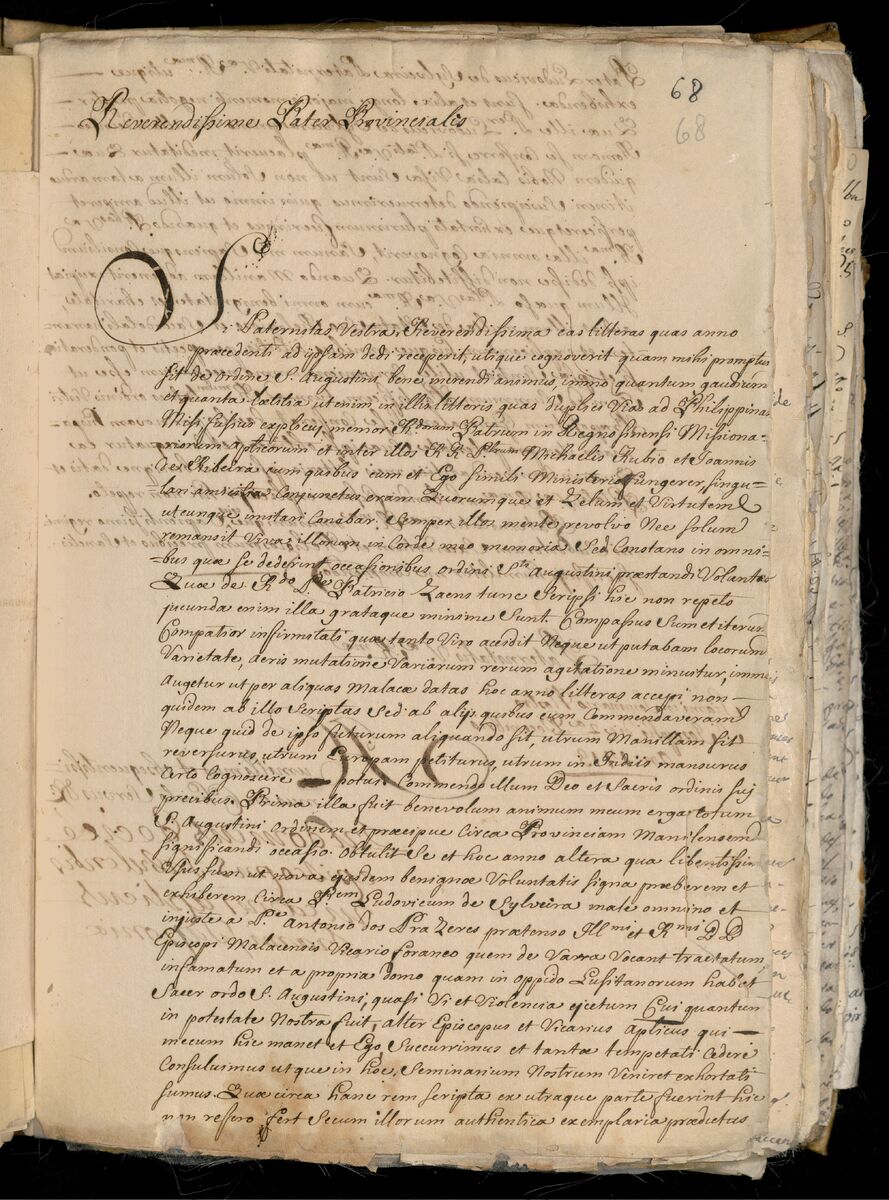 68
68
Reverendissime Pater Provincialis
Si Paternitas Vestra Reverendissima eas litteras quas anno
præcedenti ad ipsam dedi receperit, utique cognoverit quam mihi promptus
sit de ordine S. Augustini bene merendi animus, immo quantum gaudium
et quanta lætitia utenim in illis litteris quas duplici Via ad Philippinas
Misi fusius explicui, memor Rdorum Patrum in Regno sinensi Missiona-
riorum apticorum et inter illos RR Pkrum Michaelis Rubio et Joannis
de Ribeira cum quibus cum et Ego simili Ministerio fungerer, singu-
lari amicitia Conjunctus eram Quorumque et Zelum et Virtutem
utcunque imitari Conabar. Semper illos mente revolvo Nec solum
remansit Viva illorum in Corde meo memoria Sed Constans in omni-
bus quæ se dederint occasionibus ordini Sti Augustini præstandi Voluntas
Quæ de Rdo Pre Patricio Zaens tunc Scripsi hic non repeto
jucunda enim illa grataque minime Sunt. Compassus Sum et iterum
Compatior infirmitati quæ tanto Viro accidit Neque ut putabam locorum
Varietate, aeris mutatione Variarum rerum agitatione minuitur, immo
Augetur ut per aliquas Malaca datas hoc anno litteras accepi non
quidem ab illo Scriptas Sed ab alijs quibus eum Commendaveram
Neque quid de ipso futurum aliquando sit, utrum Manillam sit
reversurus, utrum Europam petiturus, utrum in Indiis mansurus
Certo Cognoscere potui. Commendo illum Deo et Sacris ordinis sui
precibus. Prima illa fuit benevolum animum meum erga totum
S. Augustini Ordinem et præcipue Circa Provinciam Manilensem
significandi occasio. Obtulit Se et hoc anno altera qua libentissime
Usus sum ut nova ejusdem benignæ Voluntatis signa præberem et
exhiberem Circa Prem Ludovicum de Sylveira male omnino et
injuste a Pe Antonio dos Prazeres prætenso Illmi et Rmi DD
Episcopi Malacensis Vicario foraneo quem de Varra Vocant tractatum
infamatum et a propria domo quam in oppido Lusitanorum habet
Sacer ordo S. Augustini, quasi Vi et Violencia ejectum Cui quantum
in potestate Nostra fuit, alter Episcopus et Vicarius apticus qui
mecum hic manet et Ego Succurrimus et tantæ tempestati Cedere
Consuluimus utque in hoc Seminarium Nostrum Veniret exhortati
sumus. Quæ circa hanc rem scripta ex utraque parte fuerint hic
non refero fert Secum illorum authentica exemplaria prædictus